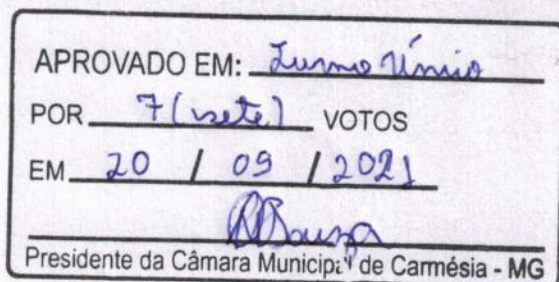 APROVADO EM: Turno Único
POR 7 (sete) VOTOS
EM 20 / 09 / 2021
Presidente da Câmara Municipal de Carmésia - MG